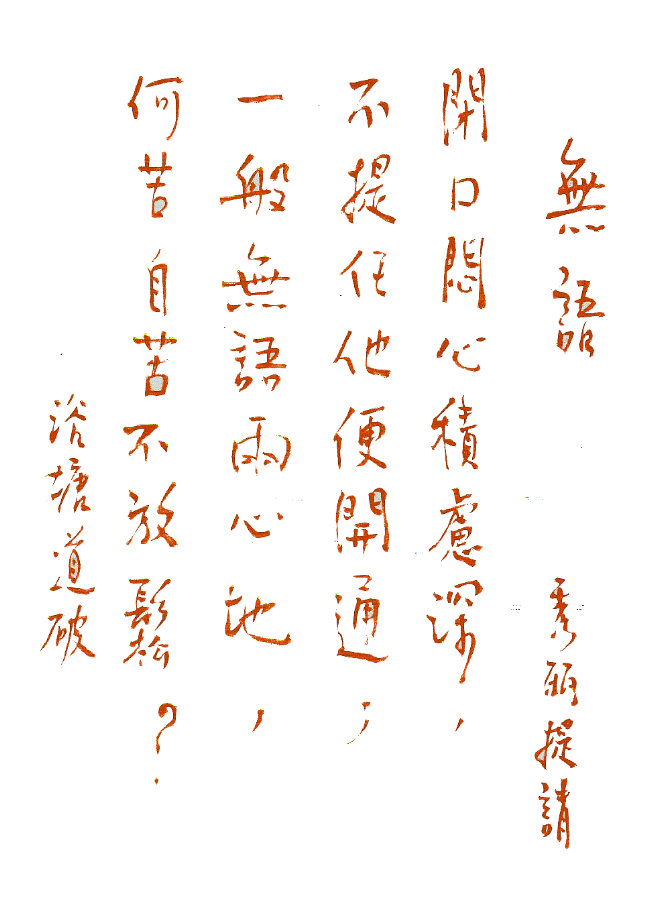 無語
秀丽提請
閉口悶心積慮深,
不提任他便開通;
一般無語兩心地,
何苦自苦不放鬆?
浴塘道破